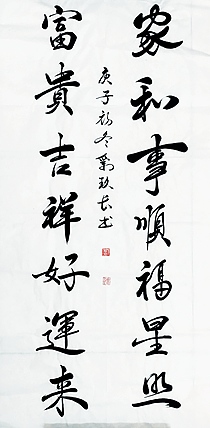 家和事順福星照
富貴吉祥好運来
庚子初冬书